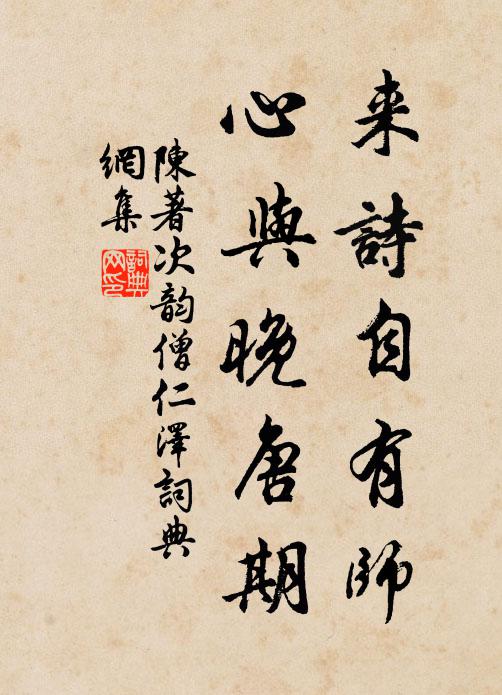 来詩自有師
心與晚唐期
陳著次韵僧仁澤詞典
網集
詞典
网印